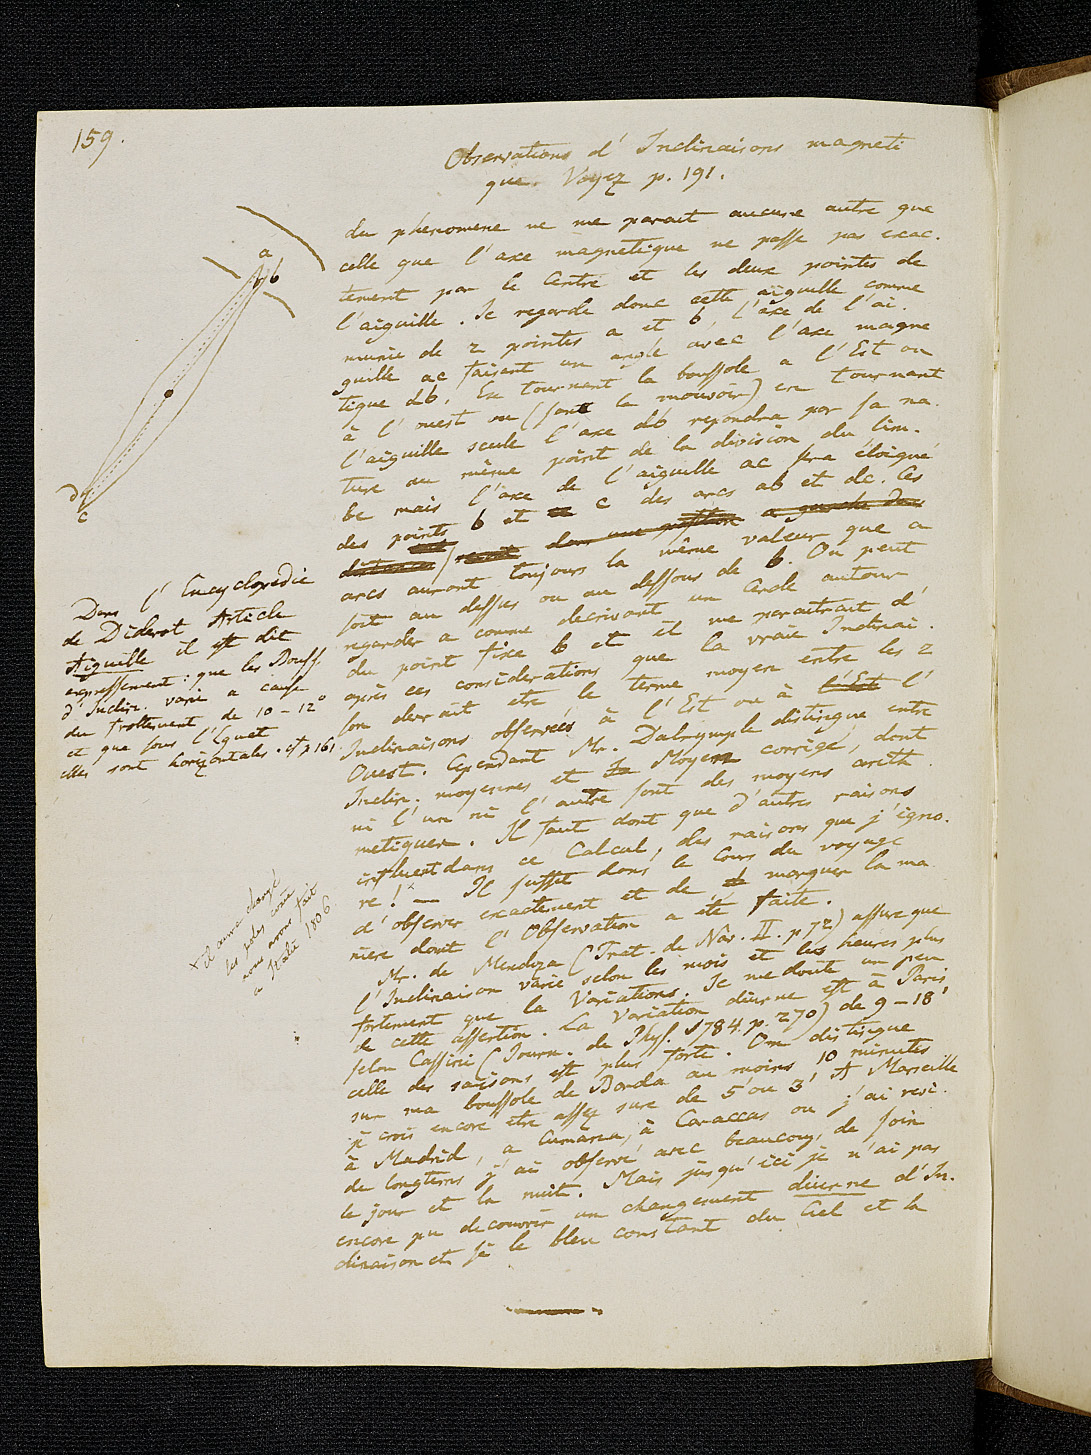 159.
Observations d' Inclinaisons magneti
que. Voyez p. 191.
a
b
d
c
du phenomene ne me parait aucune autre que
celle que l'axe magnetique ne passe pas exac.
tement par le Centre et les deux pointes de
l'aiguille. Je regarde donc cette aiguille comme
munie de 2 pointes a et b, l'axe de l'ai.
guille ac faisant un angle avec l'axe magne
tique db. En tournant la boussole a l'Est ou
à l'ouest ou (sans la mouvoir) en tournant
l'aiguille seule l'axe db repondra par sa na.
ture au même point de la division du lim.
be mais l'axe de l'aiguille ac sera éloigné
des points b et c des arcs ab et dc. Ces
distances dans une position a gauche
arcs auront toujours la même valeur que a
soit au dessus ou au dessous de b. On peut
regarder a comme decrivant un Cercle autour
du point fixe b et il me paraitrait d'
après ces considerations que la vraie Inclinai.
son devrait etre le terme moyen entre les 2
Inclinaisons observées à l'Est ou à l'Est l'
Ouest. Cependant Mr. Dalrymple distingue entre
Inclin. moyennes et Moyen corrigé, dont
ni l'un ni l'autre sont des moyens arith
metiques. Il faut dont que d'autres raisons
influent dans ce Calcul, des raisons que j'igno.
re! — Il suffit dans le Cours du voyage
d'observer exactement et de marquer la ma
niere dont l'Observation a été faite.
Mr. de Mendoza (Trat. de Nav. II. p 72) assure que
l'Inclinaison varie selon les mois et les heures plus
fortement que la Variations. Je me doute un peu
de cette assertion. La Variation diurne est à Paris
selon Cassini (Journ. de Phys. 1784. p. 270) de 9–18'
celle des saisons est plus forte. On distingue
sur ma boussole de Borda au moins 10 minutes
je crois encore etre assez sure de 5' ou 3' A Marseille
à Madrid, a Cumána, à Caraccas ou j'ai resi.
de longtems j'ai observé avec beaucoup de soin
le jour et la nuit. Mais jusqu'ici je n'ai pas
encore pu decouvrir un changement diurne d'In.
clinaison et si le bleu constant du Ciel et la
Dans l'Encyclopedie
de Diderot Article
Aiguille il est dit
expressement: que les Bouss.
d'Inclin. varie a cause
du frottement de 10–12°
et que sous l'Equat
elles sont horizontales. cf p 161.
+ il aurait changé
les poles come
nous avons fait
a Italie 1806